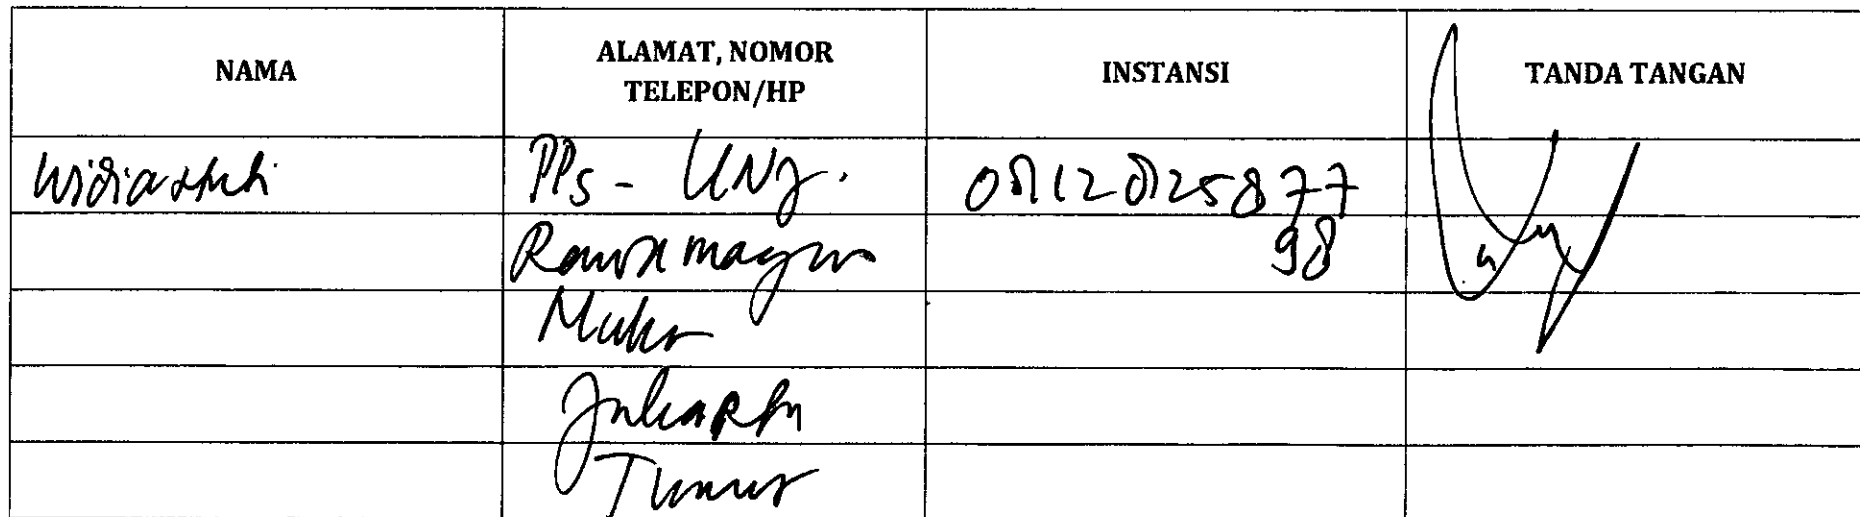 NAMA
ALAMAT, NOMOR
TELEPON/HP
INSTANSI
TANDA TANGAN
Widiastuti
PPs - UNJ.
08128025877
98
Rawamangun
Muka
Jakarta
Timur